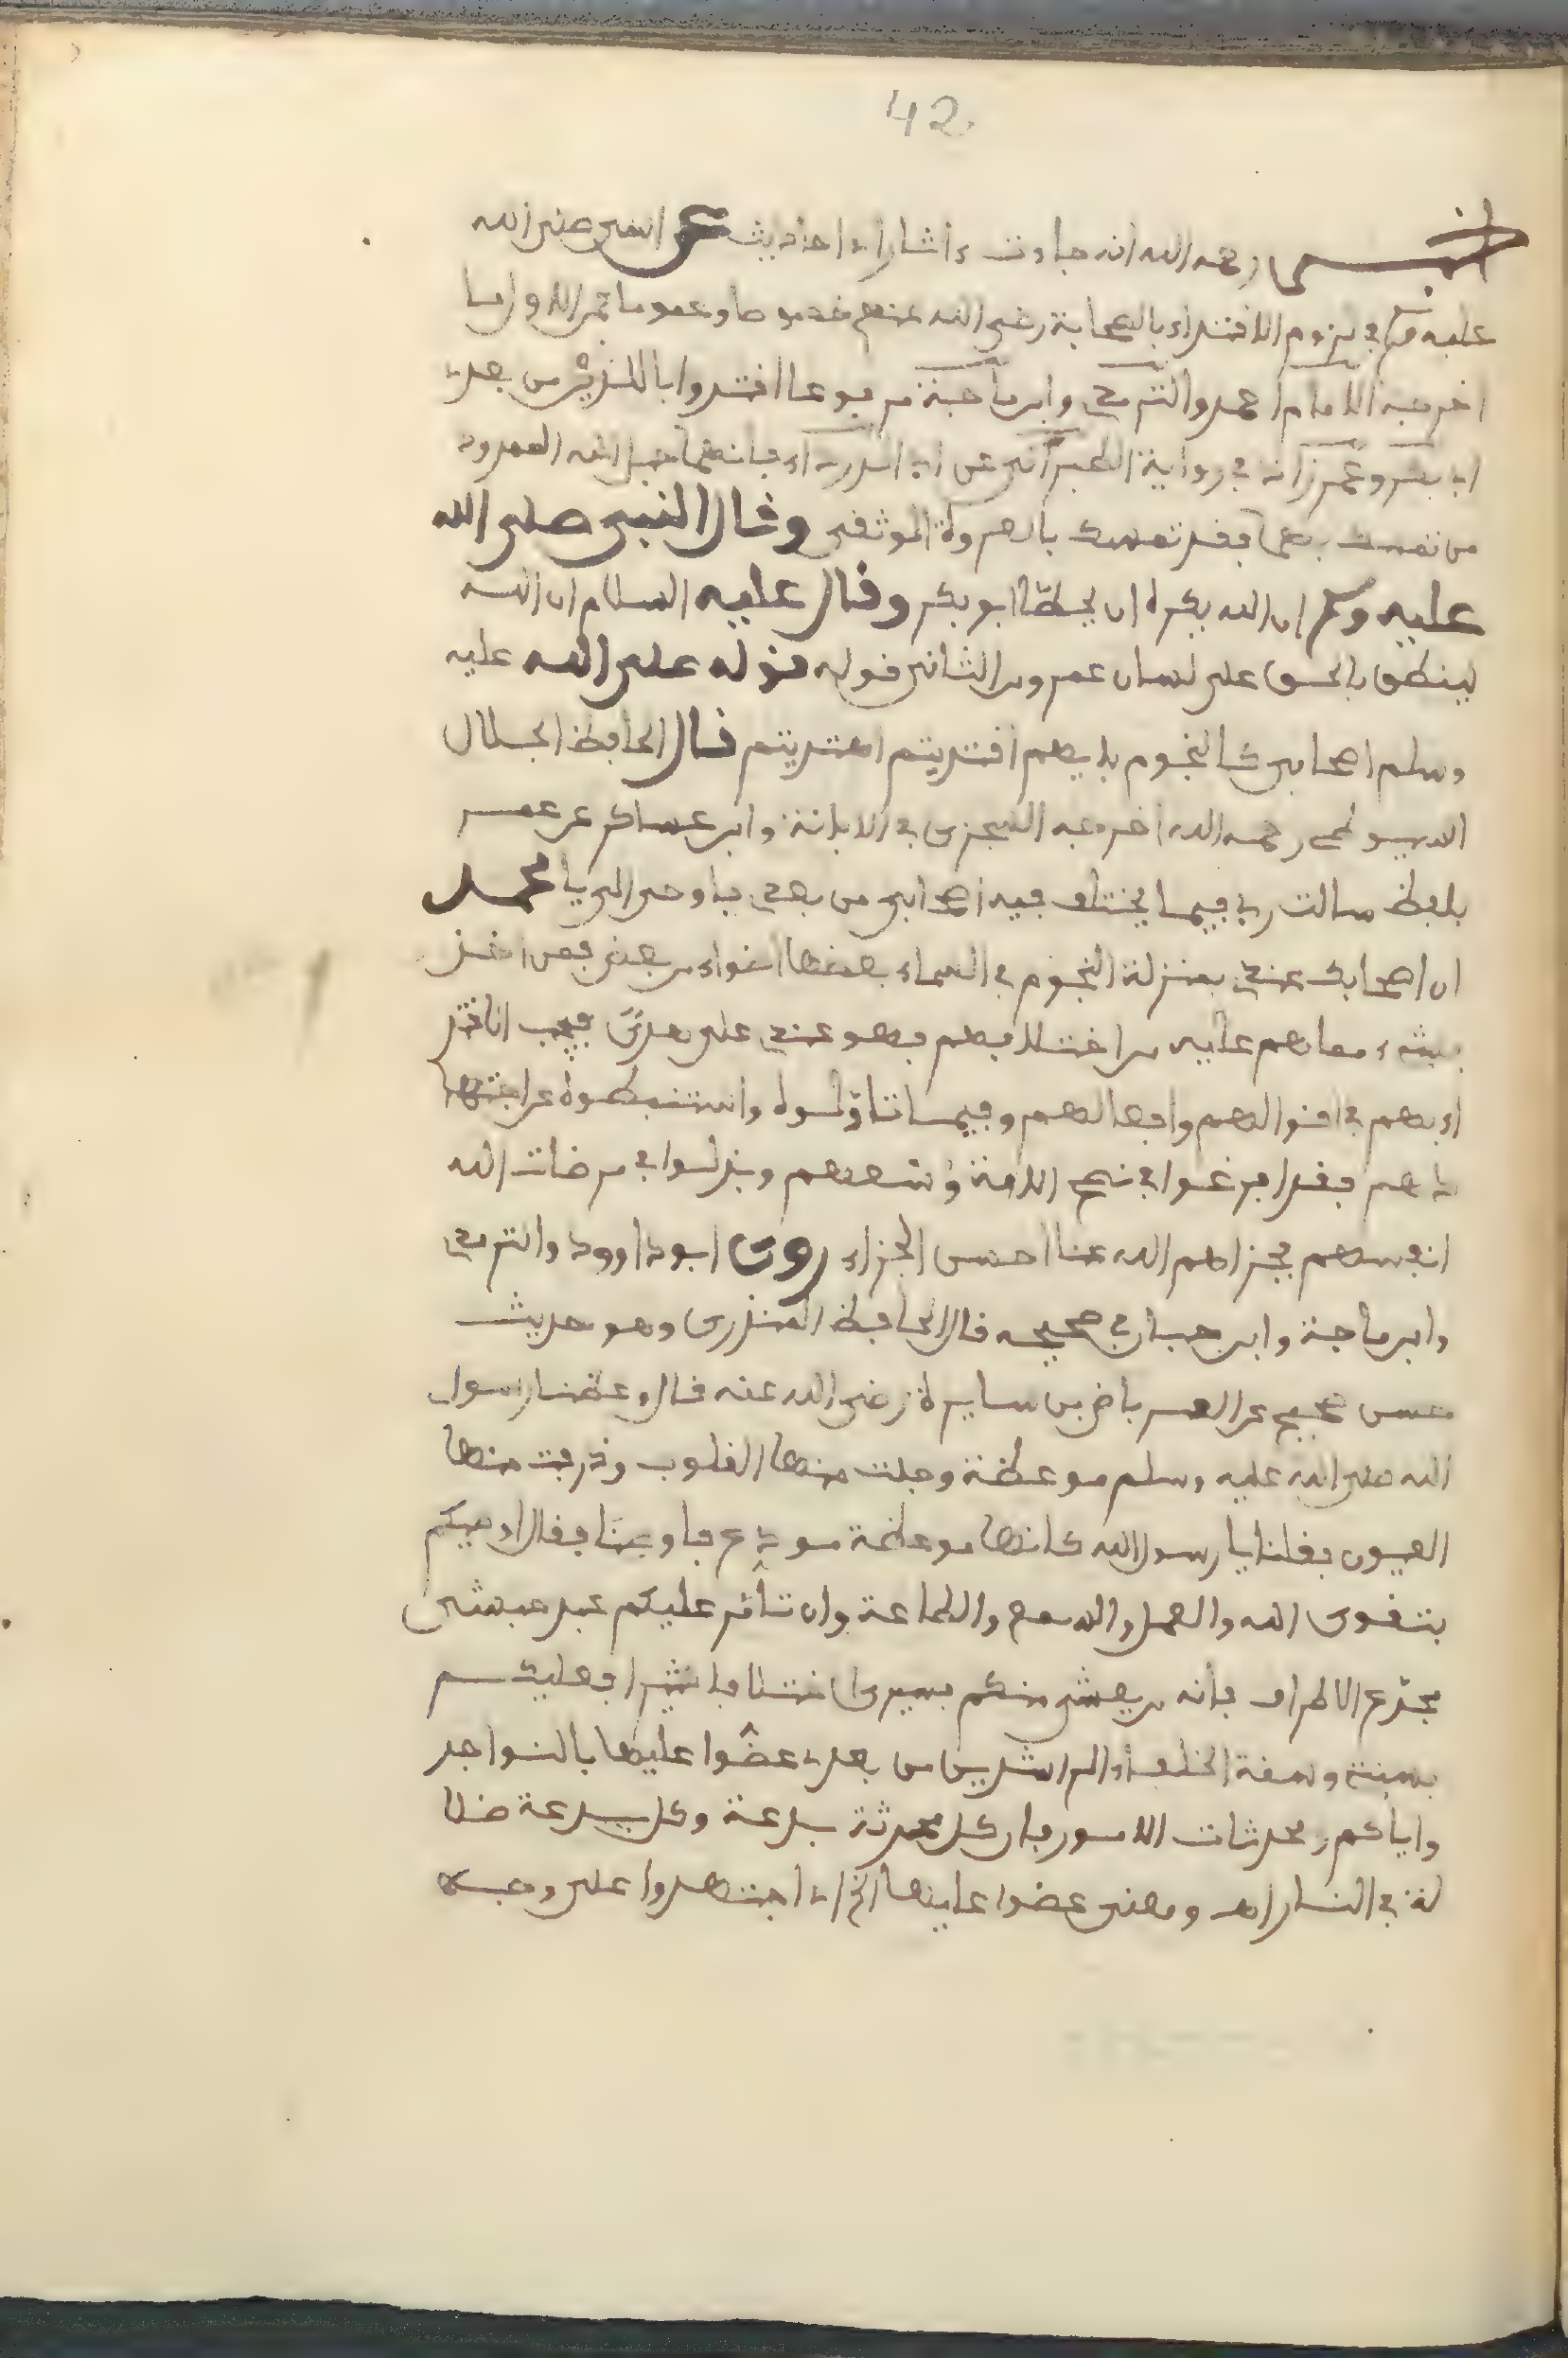 42
رحمه الله انه جاءت واشارات احاديث عن النبي صلى الله
عليه وسلم في لزوم الاقتداء بالصحابة رضي الله عنهم خصوصا وعموما فمن الاول ما
اخرجه الامام احمد والترمذي وابن ماجة مرفوعا اقتدوا بالذين من بعدي
ابي بكر وعمر زاد في رواية الطبراني عن ابي الدرداء فانهما حبل الله الممدود
من تمسك بهما فقد تمسك بالعروة الوثقى وقال النبي صلى الله
عليه وسلم ان الله يكره ان يخطّأ ابو بكر وقال عليه السلام ان الله
لينطق بالحق على لسان عمر ومن الثاني قوله قوله صلى الله عليه
وسلم اصحابي كالنجوم بايهم اقتديتم اهتديتم قال الحافظ الجلال
السيوطي رحمه الله اخرجه السجزي في الابانة وابن عساكر عن عمر
بلفظ سالت ربي فيما يختلف فيه اصحابي من بعدي فاوحى الي يا محمد
ان اصحابك عندي بمنزلة النجوم في السماء بعضها اضواء من بعض فمن اخذ
بشيء مما هم عليه من اختلافهم فهو عندي على هدىً فيجب الاقتد
اء بهم في اقوالهم وافعالهم وفيما تاوّلوه واستنبطوه عن اجتها
دهم فقد افرغوا في نصح الامة وسعهم وبذلوا في مرضات الله
انفسهم فجزاهم الله عنا احسن الجزاء روى ابو داوود والترمذي
وابن ماجة وابن حبان في صحيحه قال الحافظ المنذري وهو حديث
حسن صحيح عن العرباض بن سارية رضي الله عنه قال وعظنا رسول
الله صلى الله عليه وسلم موعظة وجلت منها القلوب وذرفت منها
العيون فقلنا يا رسول الله كانها موعظة مودع فاوصنا فقال اوصيكم
بتقوى الله والعمل والسمع والطاعة وان تأمّر عليكم عبد حبشي
مجدّع الاطراف فانه من يعش منكم فسيرى اختلافا كثيرا فعليكم
بسنتي وسنة الخلفاء الراشدين من بعدي عضّوا عليها بالنواجد
واياكم ومحدثات الامور فان كل محدثة بدعة وكل بدعة ضلا
لة في النار اهـ ومعنى عضوا عليها الخ اي اجتهدوا على